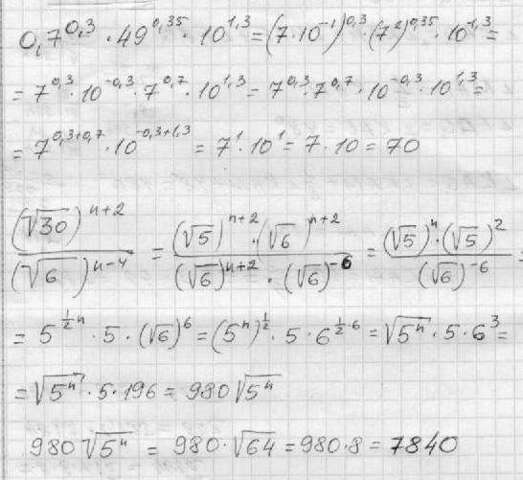 0,7^0,3 · 49^0,35 · 10^1,3 = (7·10^-1)^0,3 · (7^2)^0,35 · 10^-1,3 =
= 7^0,3 · 10^-0,3 · 7^0,7 · 10^1,3 = 7^0,3 · 7^0,7 · 10^-0,3 · 10^1,3 =
= 7^0,3+0,7 · 10^-0,3+1,3 = 7^1 · 10^1 = 7 · 10 = 70
(√30)^n+2 / (√6)^n-4 = (√5)^n+2 · (√6)^n+2 / (√6)^n+2 · (√6)^-6 = (√5)^n · (√5)^2 / (√6)^-6 =
= 5^½n · 5 · (√6)^6 = (5^n)^½ · 5 · 6^½·6 = √5^n · 5 · 6^3 =
= √5^n · 5 · 196 = 980 √5^n
980 √5^n = 980 · √64 = 980 · 8 = 7840